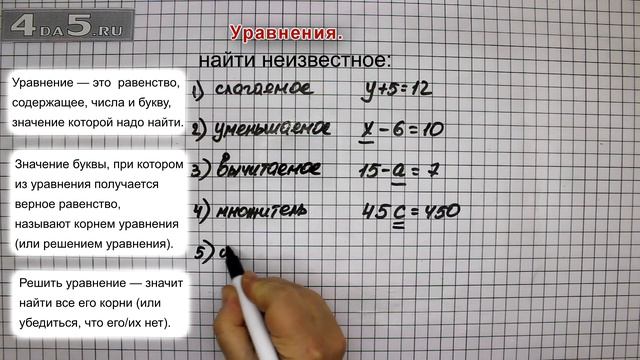 4DA5.RU
Уравнения.
найти неизвестное:
Уравнение — это равенство,
содержащее, числа и букву,
значение которой надо найти.
Значение буквы, при котором
из уравнения получается
верное равенство,
называют корнем уравнения
(или решением уравнения).
Решить уравнение — значит
найти все его корни (или
убедиться, что его/их нет).
1) слагаемое y+5=12
2) уменьшаемое x-6=10
3) вычитаемое 15-a=7
4) множитель 45c=450
5)